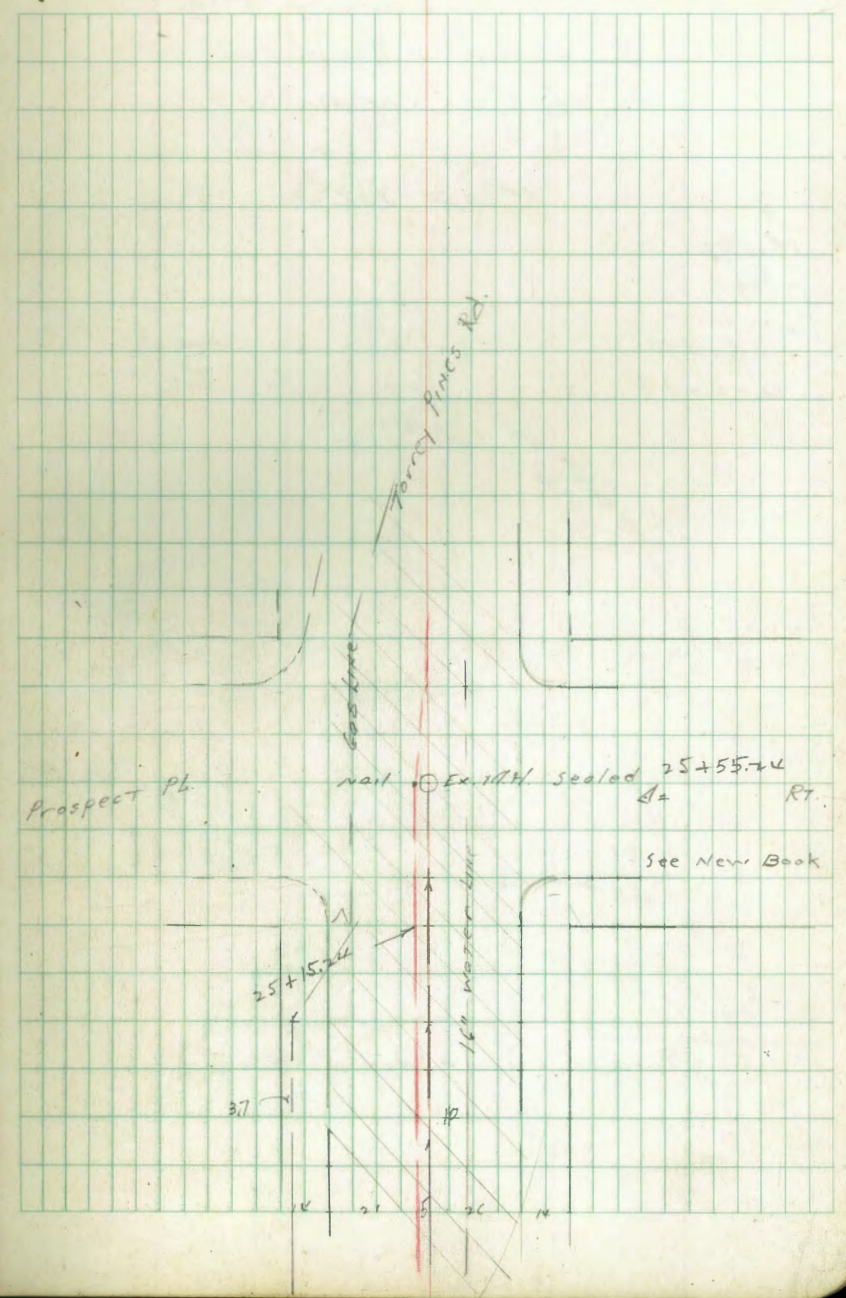 Torrey Pines Rd.
Gas Line
Prospect PL.
Nail
Ex. M.H. Sealed
25+55.24
Δ=
RT.
See New Book
25+15.24
16" Water Line
3.7
10
14
21
5
26
14